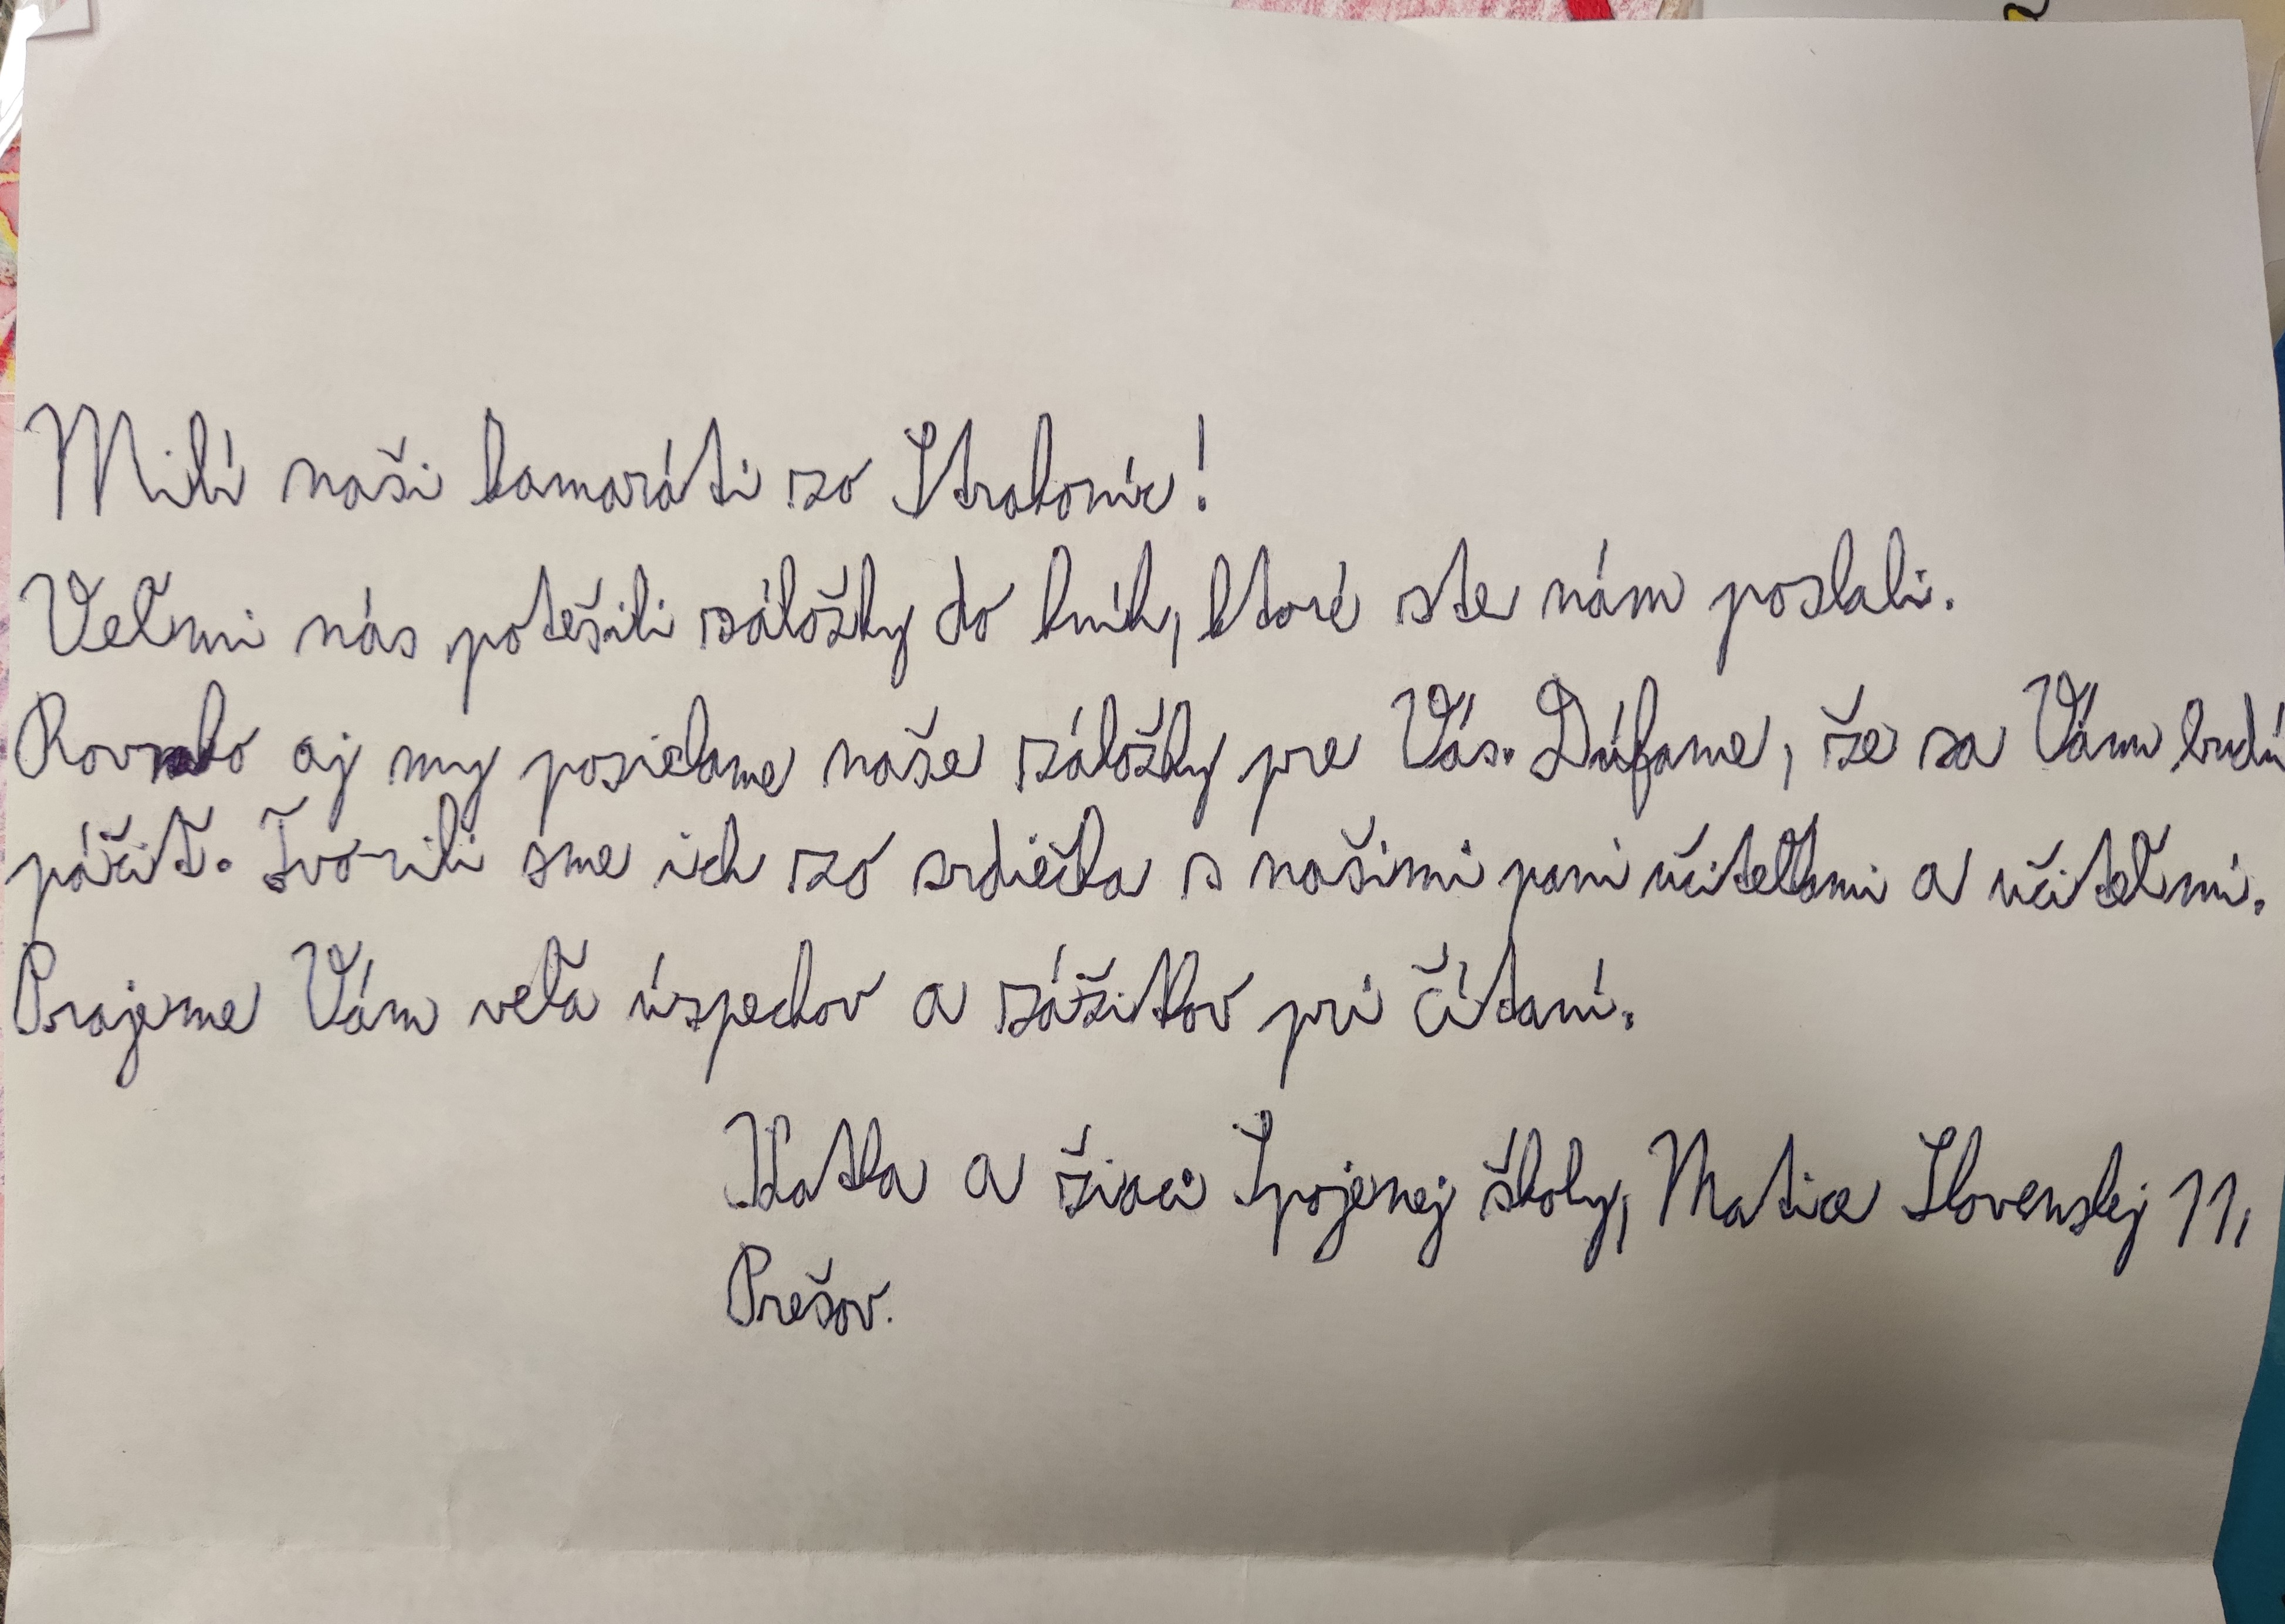 Milí naši kamaráti zo Strakoníc!
Veľmi nás potešili záložky do kníh, ktoré ste nám poslali.
Rovnako aj my posielame naše záložky pre Vás. Dúfame, že sa Vám budú
páčiť. Tvorili sme ich zo srdiečka s našimi pani učiteľkami a učiteľmi.
Prajeme Vám veľa úspechov a zážitkov pri čítaní.
Katka a žiaci Spojenej školy, Matice Slovenskej 11,
Prešov.